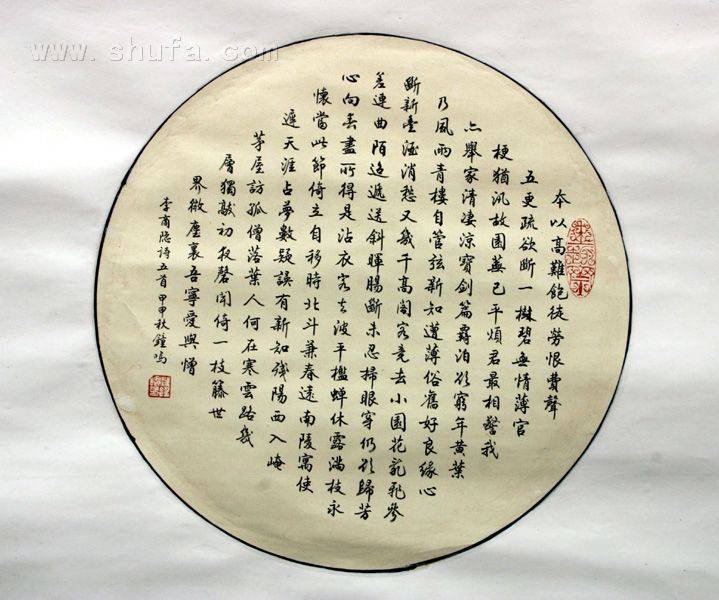 www.shufa.com
本以高難飽徒勞恨費聲
五更疏欲斷一樹碧無情薄宦
梗猶汎故園蕪已平煩君最相警我
亦舉家清淒涼寶劍篇羈泊欲窮年黃葉
乃風雨青樓自管弦新知遭薄俗舊好良緣心
斷新豐酒消愁又幾千高閣客竟去小園花亂飛參
差連曲陌迢遞送斜暉腸斷未忍掃眼穿仍欲歸芳
心向春盡所得是沾衣客去波平檻蟬休露滿枝永
懷當此節倚立自移時北斗兼春遠南陵寓使
遲天涯占夢數疑誤有新知殘陽西入崦
茅屋訪孤僧落葉人何在寒雲路幾
層獨敲初夜磬閒倚一枝藤世
界微塵裏吾寧愛與憎
李商隱詩五首甲申秋鐘鳴